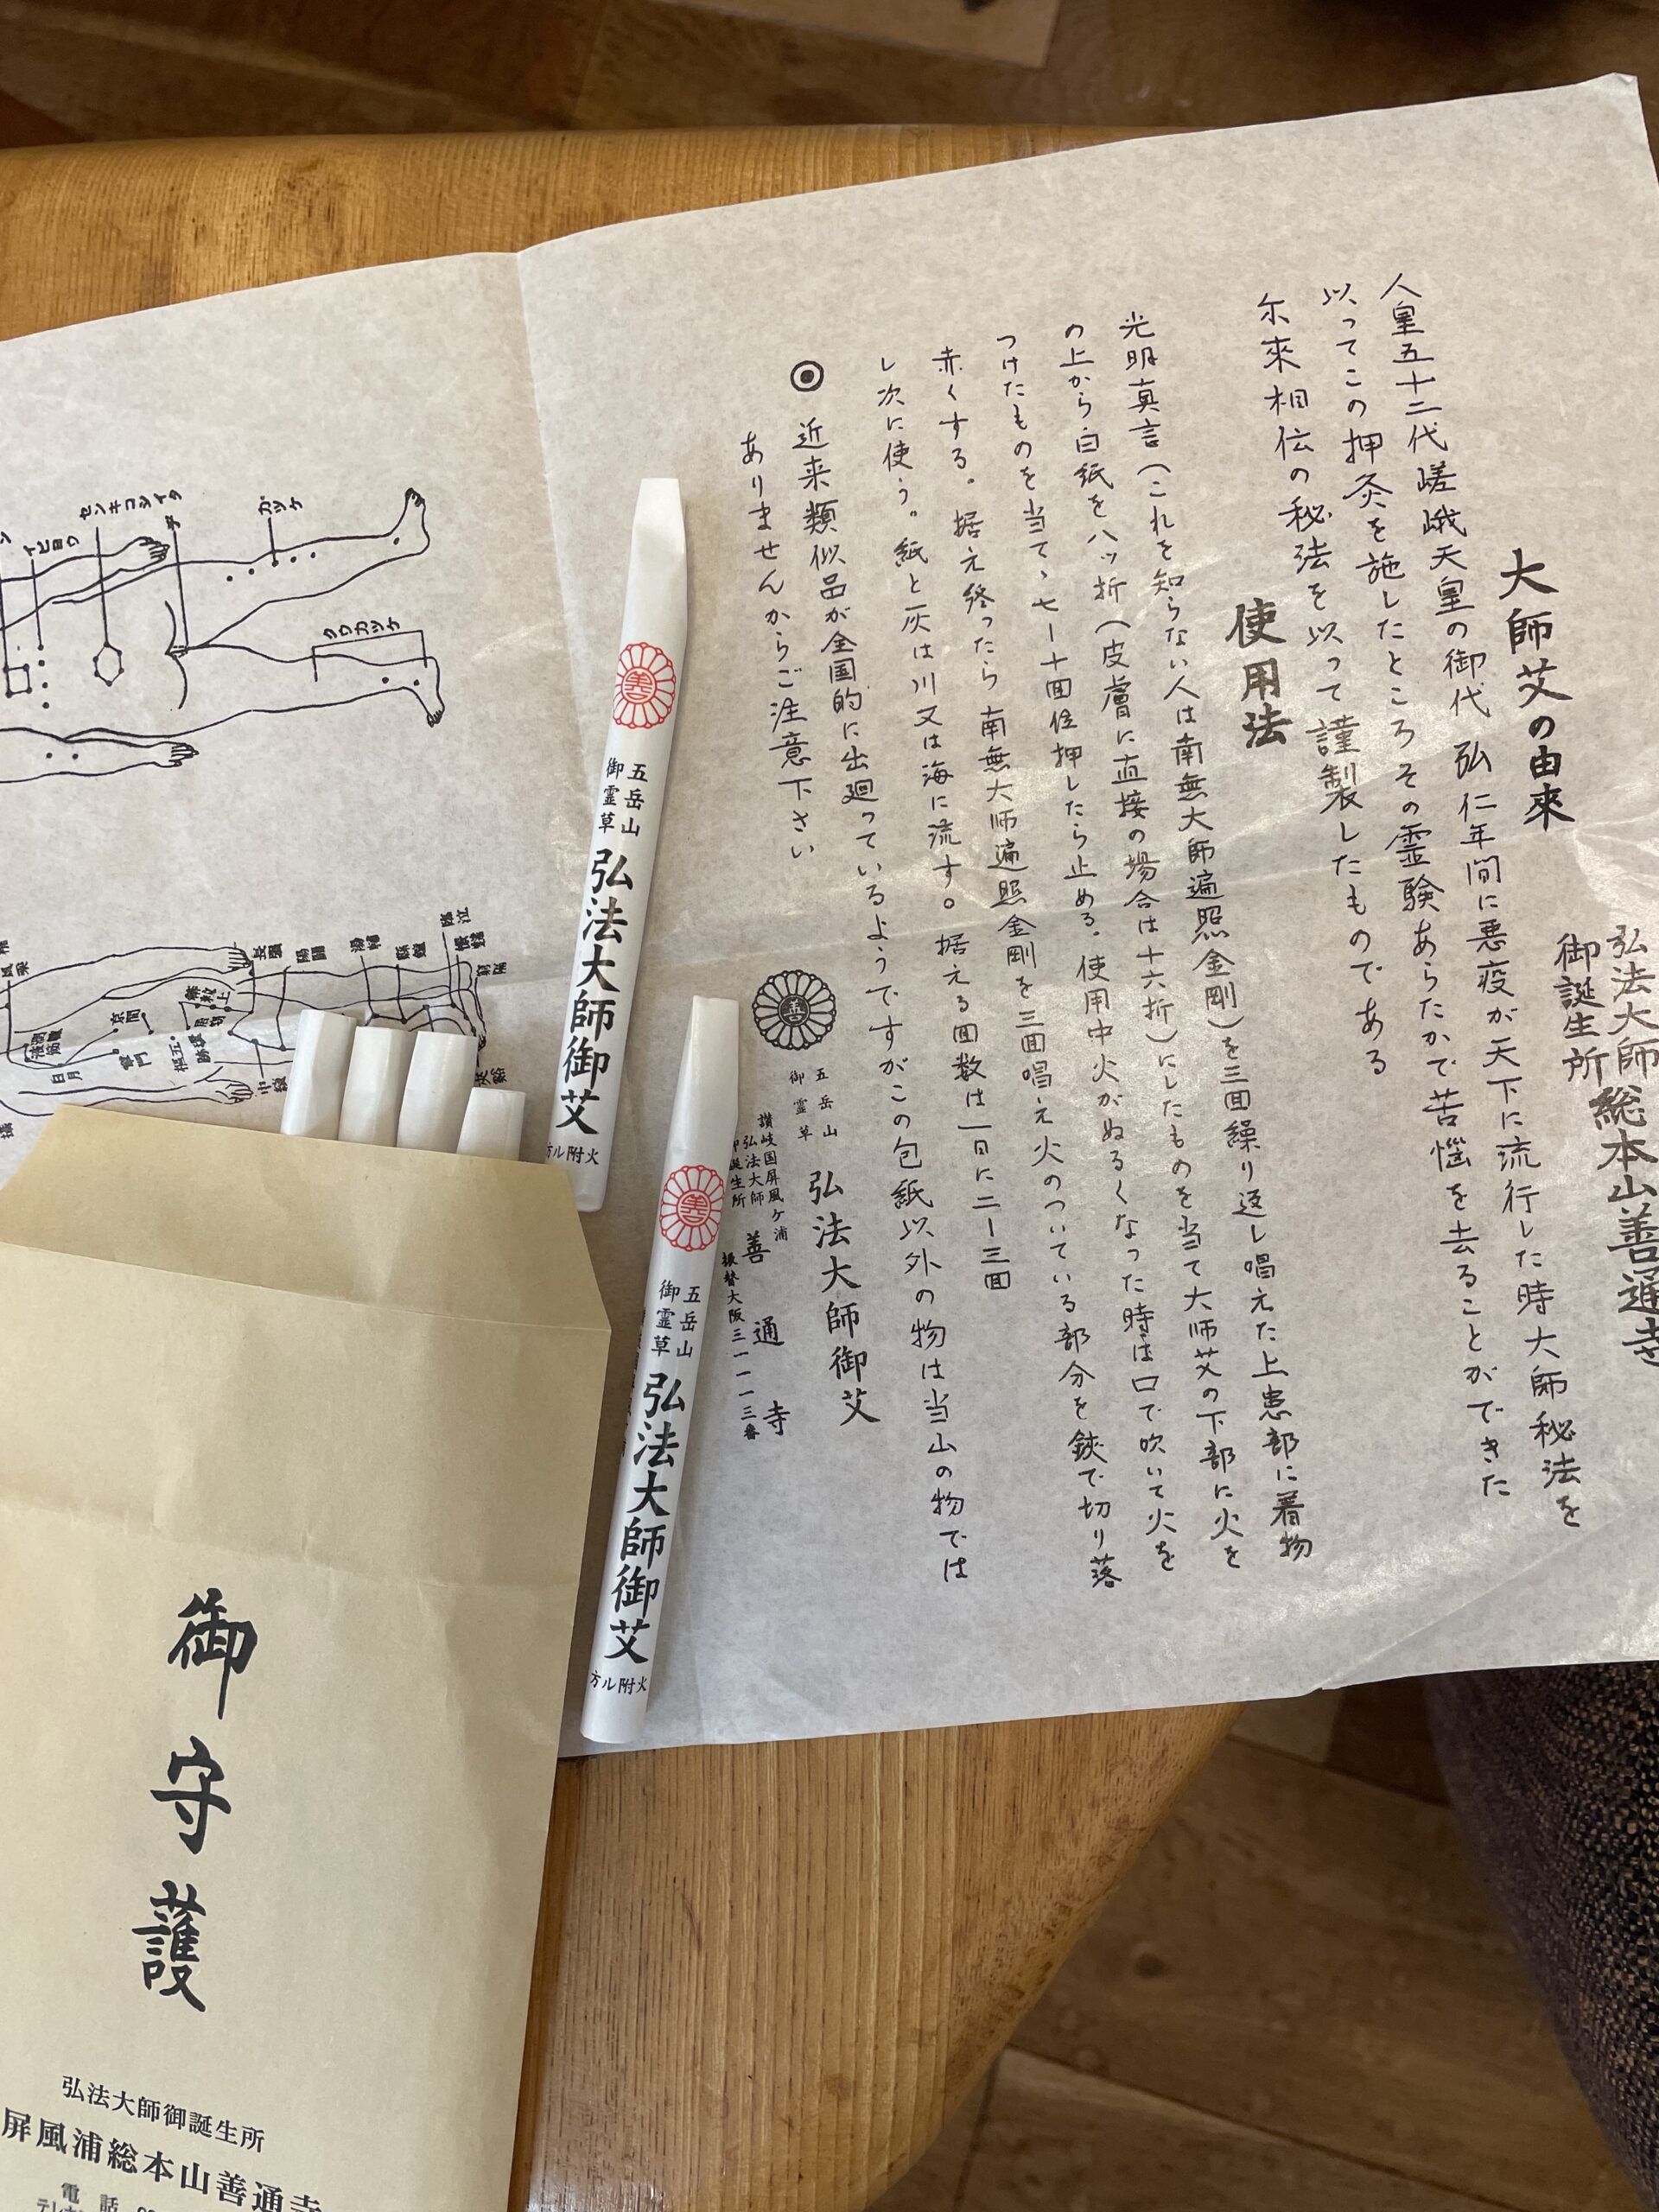 弘法大師
御誕生所
総本山善通寺
大師艾の由來
人皇五十二代嵯峨天皇の御代 弘仁年間に悪疫が天下に流行した時大師秘法を
以ってこの押灸を施したところその霊験あらたかで苦惱を去ることができた
尓來相伝の秘法を以って謹製したものである
使用法
光明真言(これを知らない人は南無大師遍照金剛)を三回繰り返し唱えた上患部に着物
の上から白紙を八ッ折(皮膚に直接の場合は十六折)にしたものを当て大师艾の下部に火を
つけたものを当て、七ー十回位押したら止める。使用中火がぬるくなった時は口で吹いて火を
赤くする。据え終ったら南無大师遍照金剛を三回唱え火のついている部分を鋏で切り落
し次に使う。紙と灰は川又は海に流す。据える回数は一日に二ー三回
◎ 近来類似品が全国的に出廻っているようですがこの包紙以外の物は当山の物では
ありませんからご注意下さい
善
五岳山
御霊草
弘法大師御艾
讃岐国屏風ケ浦
弘法大師
御誕生所
善通寺
振替大阪三一一一三番
善
五岳山
御霊草
弘法大師御艾
火附ル方
善
五岳山
御霊草
弘法大師御艾
火附ル方
カッケ
センキコシイタ
チ
イヒヨワ
御守護
弘法大師御誕生所
屏風浦総本山善通寺
電話